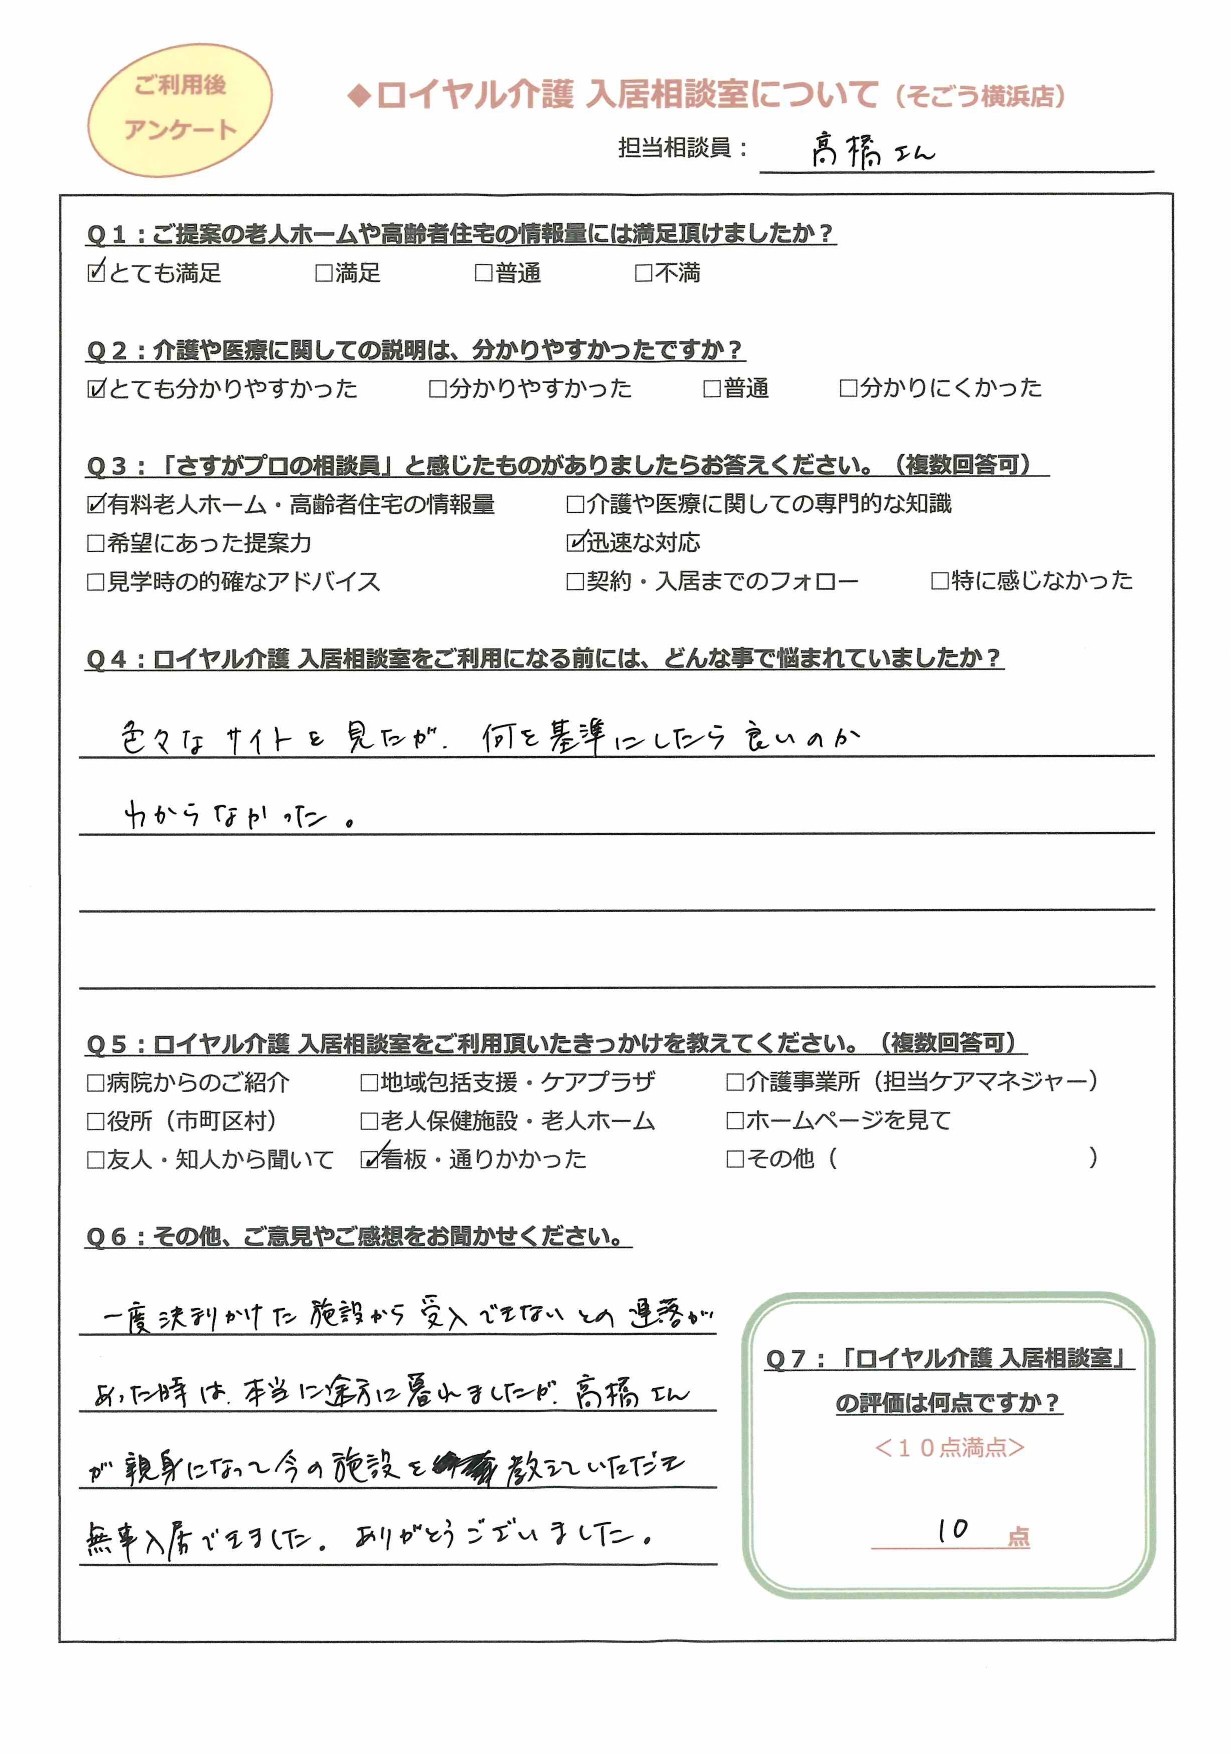 ご利用後
アンケート
◆ロイヤル介護 入居相談室について（そごう横浜店）
担当相談員： 高橋さん
Ｑ１：ご提案の老人ホームや高齢者住宅の情報量には満足頂けましたか？
☑とても満足 □満足 □普通 □不満
Ｑ２：介護や医療に関しての説明は、分かりやすかったですか？
☑とても分かりやすかった □分かりやすかった □普通 □分かりにくかった
Ｑ３：「さすがプロの相談員」と感じたものがありましたらお答えください。（複数回答可）
☑有料老人ホーム・高齢者住宅の情報量 □介護や医療に関しての専門的な知識
□希望にあった提案力 ☑迅速な対応
□見学時の的確なアドバイス □契約・入居までのフォロー □特に感じなかった
Ｑ４：ロイヤル介護 入居相談室をご利用になる前には、どんな事で悩まれていましたか？
色々なサイトを見たが、何を基準にしたら良いのか
わからなかった。
Ｑ５：ロイヤル介護 入居相談室をご利用頂いたきっかけを教えてください。（複数回答可）
□病院からのご紹介 □地域包括支援・ケアプラザ □介護事業所（担当ケアマネジャー）
□役所（市町区村） □老人保健施設・老人ホーム □ホームページを見て
□友人・知人から聞いて ☑看板・通りかかった □その他（ ）
Ｑ６：その他、ご意見やご感想をお聞かせください。
一度決まりかけた施設から受入できないとの連落が
あった時は、本当に途方に暮れましたが、高橋さん
が親身になって今の施設を教えていただき
無事入居できました。ありがとうございました。
Ｑ７：「ロイヤル介護 入居相談室」
の評価は何点ですか？
＜１０点満点＞
10 点